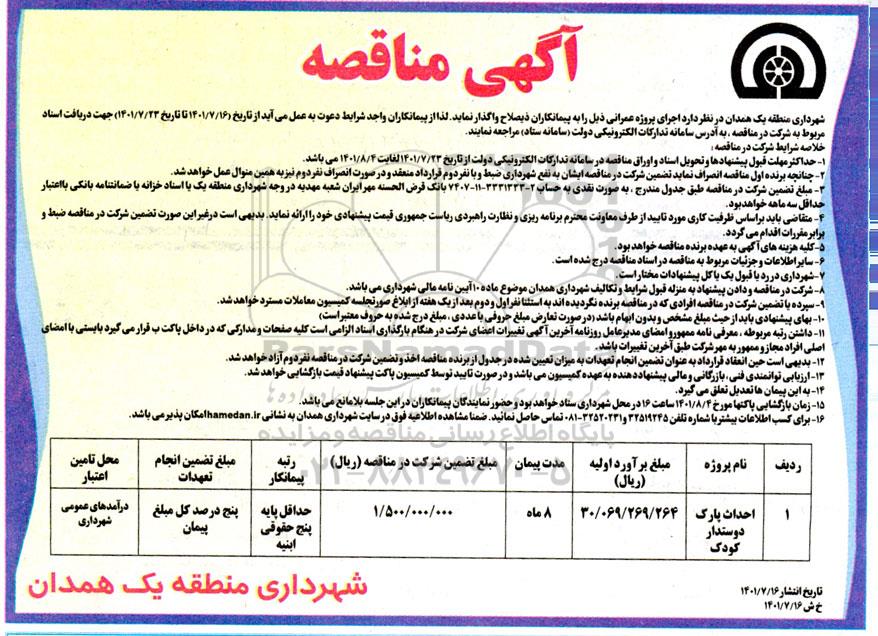 آگهی مناقصه
شهرداری منطقه یک همدان در نظر دارد اجرای پروژه عمرانی ذیل را به پیمانکاران ذیصلاح واگذار نماید. لذا از پیمانکاران واجد شرایط دعوت به عمل می آید از تاریخ (۱۴۰۱/۷/۱۶ تا تاریخ ۱۴۰۱/۷/۲۳) جهت دریافت اسناد
مربوط به شرکت در مناقصه ، به آدرس سامانه تدارکات الکترونیکی دولت (سامانه ستاد) مراجعه نمایند.
خلاصه شرایط شرکت در مناقصه :
۱- حداکثر مهلت قبول پیشنهادها و تحویل اسناد و اوراق مناقصه در سامانه تدارکات الکترونیکی دولت از تاریخ ۱۴۰۱/۷/۲۳ لغایت ۱۴۰۱/۸/۴ می باشد.
۲- چنانچه برنده اول مناقصه انصراف نماید تضمین شرکت در مناقصه ایشان به نفع شهرداری ضبط و با نفر دوم قرارداد منعقد و در صورت انصراف نفر دوم نیز به همین منوال عمل خواهد شد.
۳- مبلغ تضمین شرکت در مناقصه طبق جدول مندرج ، به صورت نقدی به حساب ۲-۳۳۳۱۳۳۳-۱۱-۷۴۰۷ بانک قرض الحسنه مهر ایران شعبه مهدیه در وجه شهرداری منطقه یک یا اسناد خزانه یا ضمانتنامه بانکی با اعتبار
حداقل سه ماهه خواهد بود.
۴- متقاضی باید براساس ظرفیت کاری مورد تایید از طرف معاونت محترم برنامه ریزی و نظارت راهبردی ریاست جمهوری قیمت پیشنهادی خود را ارائه نماید. بدیهی است در غیر این صورت تضمین شرکت در مناقصه ضبط و
برابر مقررات اقدام می گردد.
۵- کلیه هزینه های آگهی به عهده برنده مناقصه خواهد بود.
۶- سایر اطلاعات و جزئیات مربوط به مناقصه در اسناد مناقصه درج شده است.
۷- شهرداری در رد یا قبول یک یا کل پیشنهادات مختار است.
۸- شرکت در مناقصه و دادن پیشنهاد به منزله قبول شرایط و تکالیف شهرداری همدان موضوع ماده ۱۰ آیین نامه مالی شهرداری می باشد.
۹- سپرده یا تضمین شرکت در مناقصه افرادی که در مناقصه برنده نگردیده اند به استثنا نفر اول و دوم بعد از یک هفته از ابلاغ صورتجلسه کمیسیون معاملات مسترد خواهد شد.
۱۰- بهای پیشنهادی باید از حیث مبلغ مشخص و بدون ابهام باشد (در صورت تعارض مبلغ حروفی با عددی ، مبلغ درج شده به حروف معتبر است)
۱۱- داشتن رتبه مربوطه ، معرفی نامه ممهور و امضای مدیرعامل روزنامه آخرین آگهی تغییرات اعضای شرکت در هنگام بارگذاری اسناد الزامی است کلیه صفحات و مدارکی که در داخل پاکت ب قرار می گیرد بایستی با امضای
اصلی افراد مجاز و ممهور به مهر شرکت طبق آخرین تغییرات باشد.
۱۲- بدیهی است حین انعقاد قرارداد به عنوان تضمین انجام تعهدات به میزان تعیین شده در جدول از برنده مناقصه اخذ و تضمین شرکت در مناقصه نفر دوم آزاد خواهد شد.
۱۳- ارزیابی توانمندی فنی ، بازرگانی و مالی پیشنهاد دهنده به عهده کمیسیون می باشد و در صورت تایید توسط کمیسیون پاکت پیشنهاد قیمت بازگشایی خواهد شد.
۱۴- به این پیمان ها تعدیل تعلق می گیرد.
۱۵- زمان بازگشایی پاکتها مورخ ۱۴۰۱/۸/۴ ساعت ۱۶ در محل شهرداری ستاد خواهد بود و حضور نمایندگان پیمانکاران در این جلسه بلامانع می باشد.
۱۶- برای کسب اطلاعات بیشتر با شماره تلفن ۳۲۵۱۹۲۴۵ و ۳۲۵۲۰۲۳۱-۰۸۱ تماس حاصل نمائید. ضمنا مشاهده اطلاعیه فوق در سایت شهرداری همدان به نشانی hamedan.ir امکان پذیر می باشد.
ParsNamadData
پایگاه اطلاع رسانی مناقصه و مزایده
۰۲۱-۸۸۳۴۹۶۷۰-۵
ردیف نام پروژه مبلغ برآورد اولیه (ریال) مدت پیمان مبلغ تضمین شرکت در مناقصه (ریال) رتبه پیمانکار مبلغ تضمین انجام تعهدات محل تامین اعتبار
۱ احداث پارک دوستدار کودک ۳۰/۰۶۹/۲۶۹/۲۶۴ ۸ ماه ۱/۵۰۰/۰۰۰/۰۰۰ حداقل پایه پنج حقوقی ابنیه پنج درصد کل مبلغ پیمان درآمدهای عمومی شهرداری
تاریخ انتشار ۱۴۰۱/۷/۱۶
خ ش ۱۴۰۱/۷/۱۶
شهرداری منطقه یک همدان